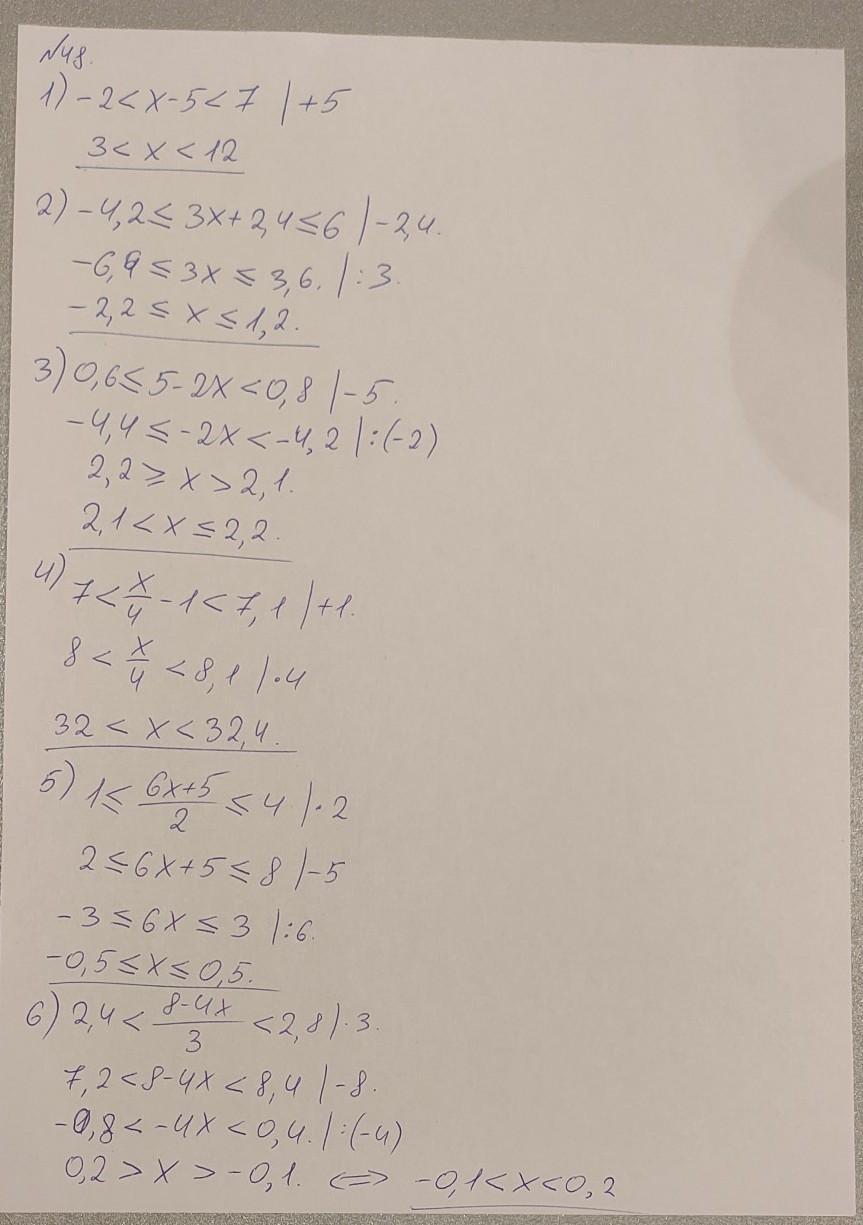 №48.
1) -2 < x-5 < 7 | +5
3 < x < 12
2) -4,2 ≤ 3x+2,4 ≤ 6 | -2,4.
-6,6 ≤ 3x ≤ 3,6. | :3.
-2,2 ≤ x ≤ 1,2.
3) 0,6 ≤ 5-2x < 0,8 | -5.
-4,4 ≤ -2x < -4,2 | :(-2)
2,2 ≥ x > 2,1.
2,1 < x ≤ 2,2.
4) 7 < x/4 - 1 < 7,1 | +1.
8 < x/4 < 8,1 | ·4
32 < x < 32,4.
5) 1 ≤ (6x+5)/2 ≤ 4 | ·2
2 ≤ 6x+5 ≤ 8 | -5
-3 ≤ 6x ≤ 3 | :6.
-0,5 ≤ x ≤ 0,5.
6) 2,4 < (8-4x)/3 < 2,8 | ·3.
7,2 < 8-4x < 8,4 | -8.
-0,8 < -4x < 0,4. | :(-4)
0,2 > x > -0,1. ⇔ -0,1 < x < 0,2